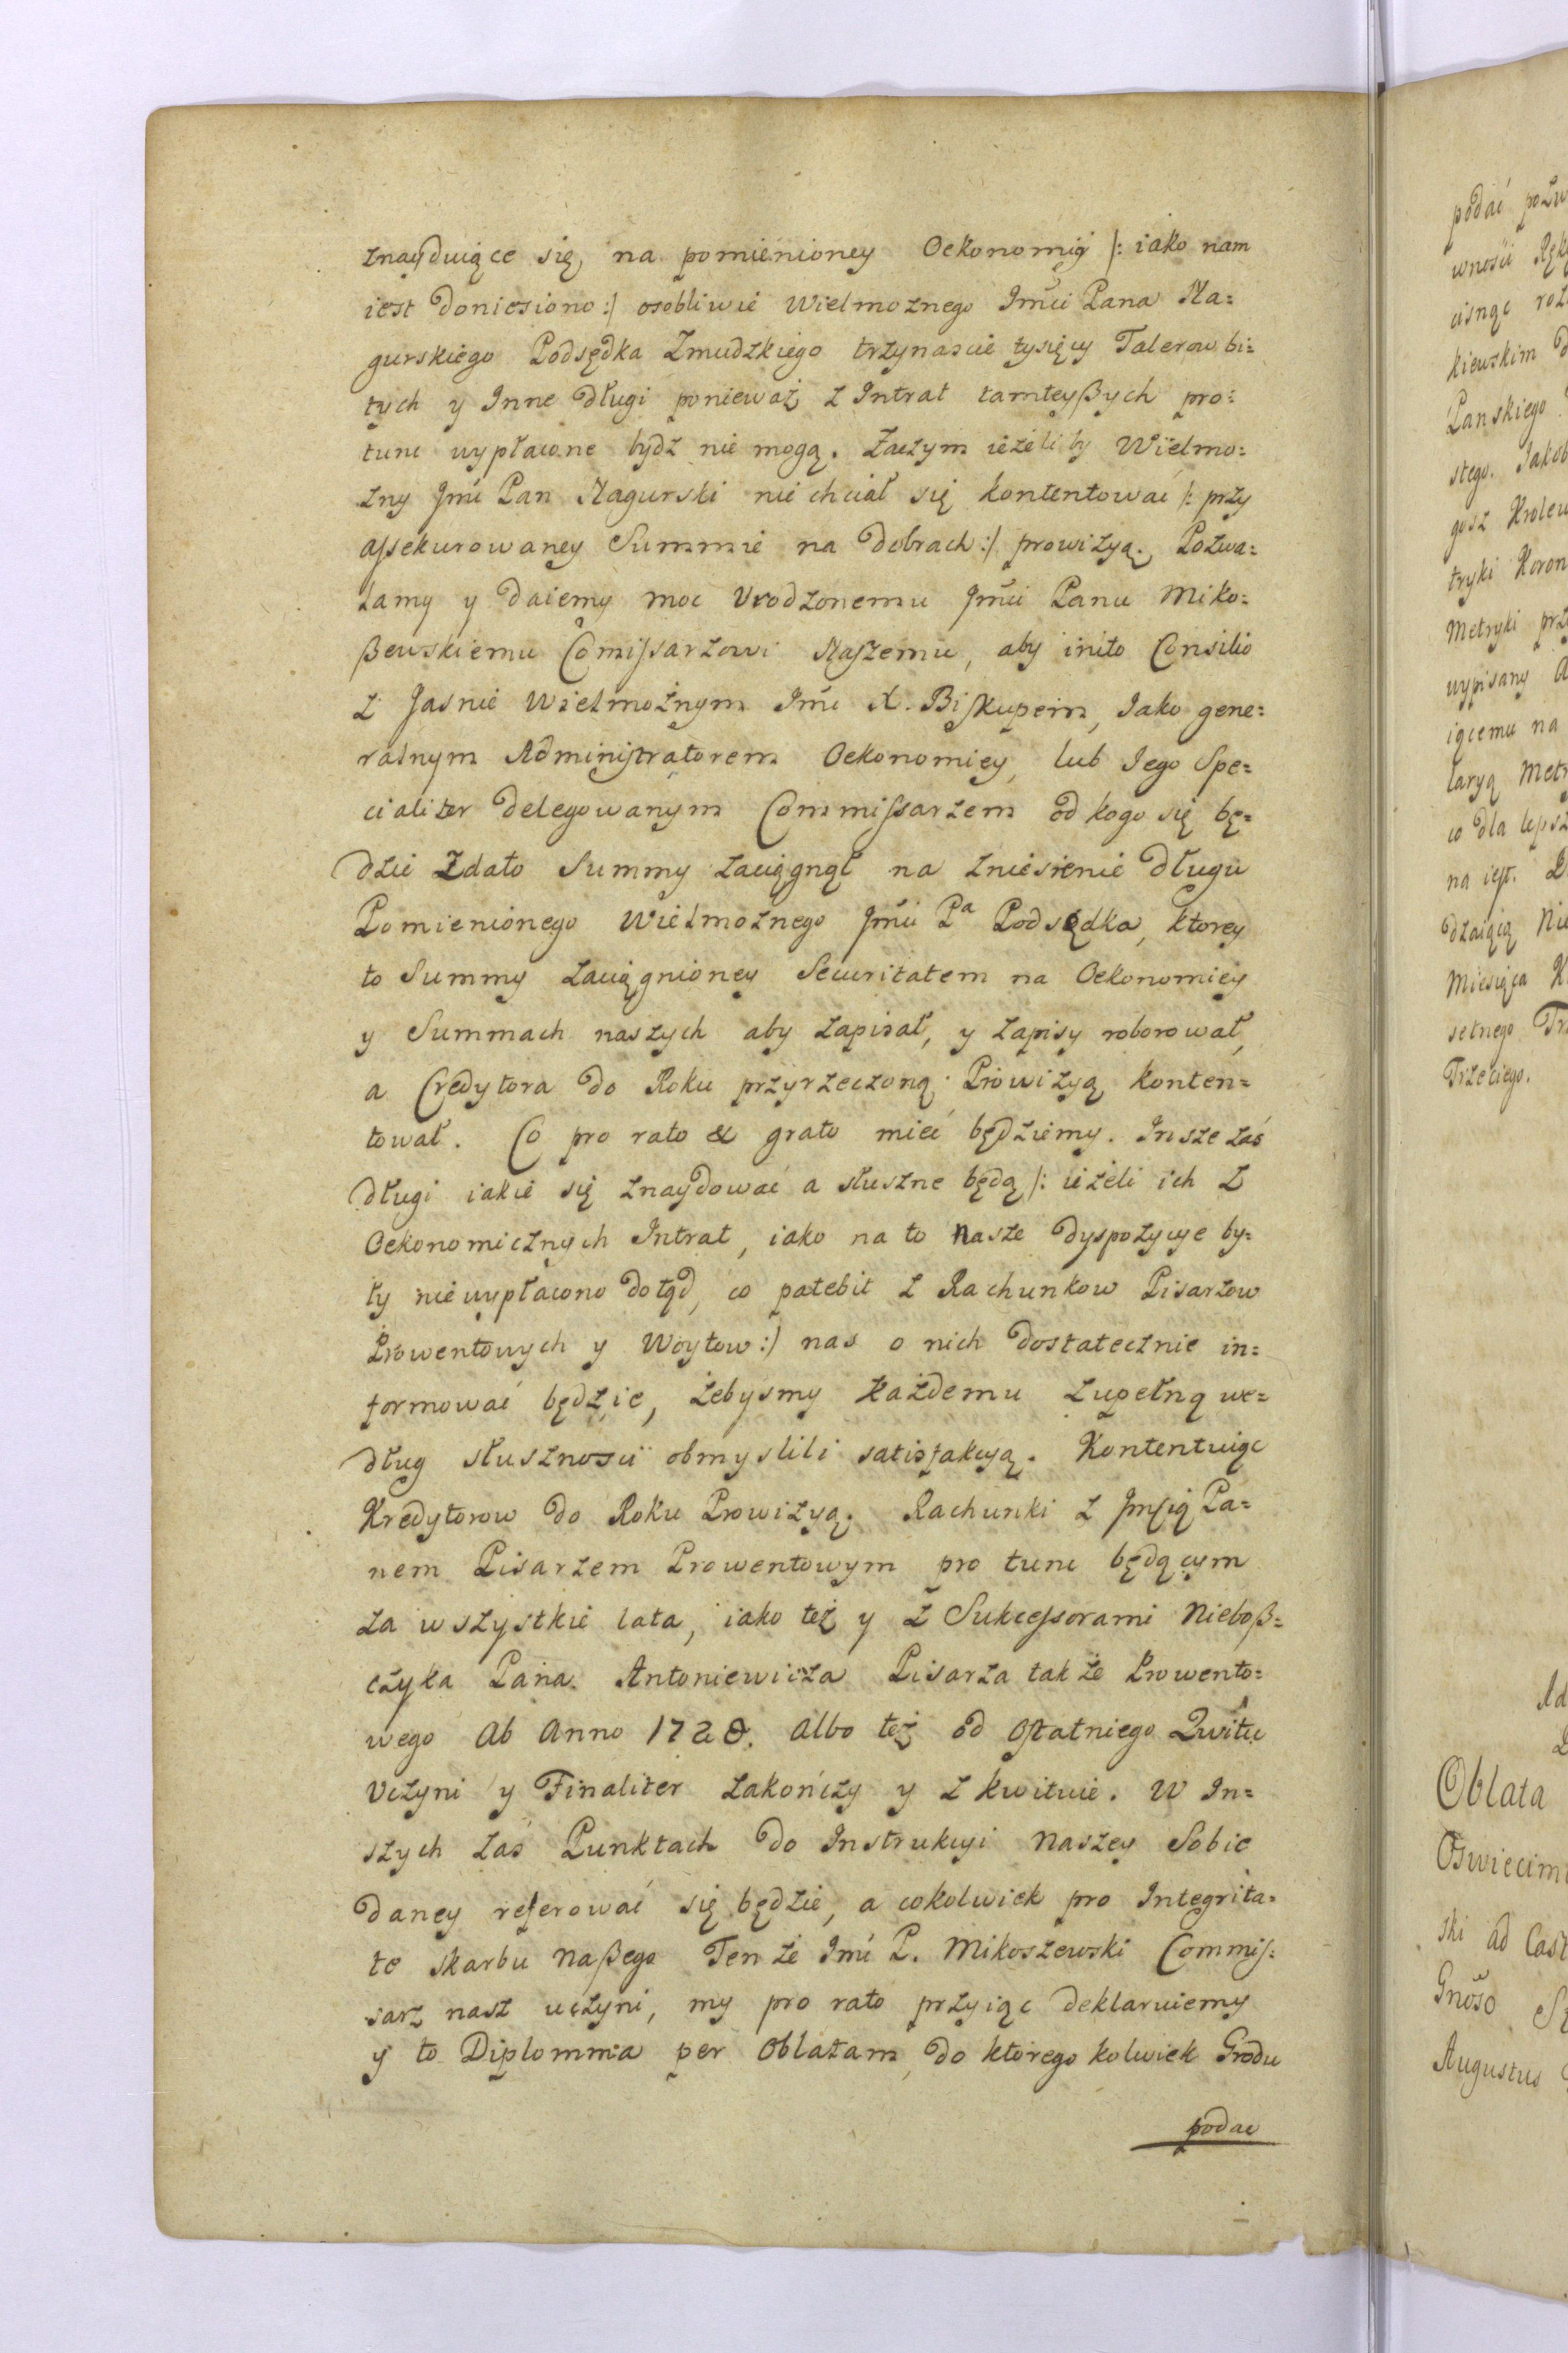 znayduiące się, na pomienioney Oekonomiý /: iako nam
iest doniesiono :/ osobliwie Wielmoznego Jmci Pana Na=
gurskiego Podsędka Zmudzkiego trzynascie tysięcy Talerow bi=
tych y Inne długi ponieważ z Intrat tamteyßych pro=
tunc wypłacone bydz nie mogą. Zaczym ieżeliby Wielmo=
zny Jmć Pan Nagurski nie chciał się kontentować /: przy
assekurowaney Summie na dobrach :/ prowizyą. Pozwa=
lamy y daiemy moc Vrodzonemu Jmci Panu Miko=
ßewskiemu Comissarzowi Naszemu, aby inito Consilio
z Jasnie Wielmożnym Jmć X. Biskupem, Jako gene=
ralnym Administratorem Oekonomiey, lub Jego Spe=
cialiter delegowanym Commissarzem od kogo się bę=
dzie Zdało Summy zaciągnął na zniesienie długu
Pomienionego Wielmożnego Jmci Pa Podsędka, ktorey
to Summy zaciągnioney Securitatem na Oekonomiey
y Summach naszych aby zapisał, y zapisy roborował,
a Credytora do Roku przyrzeczoną Prowizyą konten=
tował. Co pro rato & grato mieć będziemy. Insze zaś
długi iakie się znaydować a słuszne będą /: ieżeli ich z
Oekonomicznych Intrat, iako na to nasze dyspozycye by=
ły nie wypłacono dotąd, co patebit z Rachunkow Pisarzow
Prowentowych y Woytow :/ nas o nich dostatecznie in=
formować będzie, żebysmy każdemu zupełną we=
dług słusznosci obmyslili satisfakcyą. Kontentuiąc
Kredytorow do Roku Prowizyą. Rachunki z Jmścią Pa=
nem Pisarzem Prowentowym pro tunc będącym
za wszystkie lata, iako też y z Sukcessorami Nieboß=
czyka Pana Antoniewicza Pisarza takze Prowento=
wego Ab Anno 1728. Albo też od Ostatniego Qwitu
Vczyni y Finaliter zakończy y z kwituie. W In=
szych zas Punktach do Instrukcyi Naszey Sobie
daney referować się będzie, a cokolwiek pro Integrita=
te skarbu Naßego Tenże Jmć P. Mikoszewski Commis=
sarz nasz uczyni, my pro rato przyiąc deklaruiemy
y to Diplomma per Oblatam, do ktorego kolwiek Grodu
podac
podać pozw
wnosci
cisnąc
kiewskim
Panskiego
stego. Jakob
gosz Krolew
tryki Koron
Metryki prz
wypisany
iącemu na
laryą Metr
co dla lepsz
na iest.
dzaiącą Nie
Miesiąca
setnego
Trzeciego.
Oblata
Oswiecim
ski ad Cast
Gnoso
Augustus